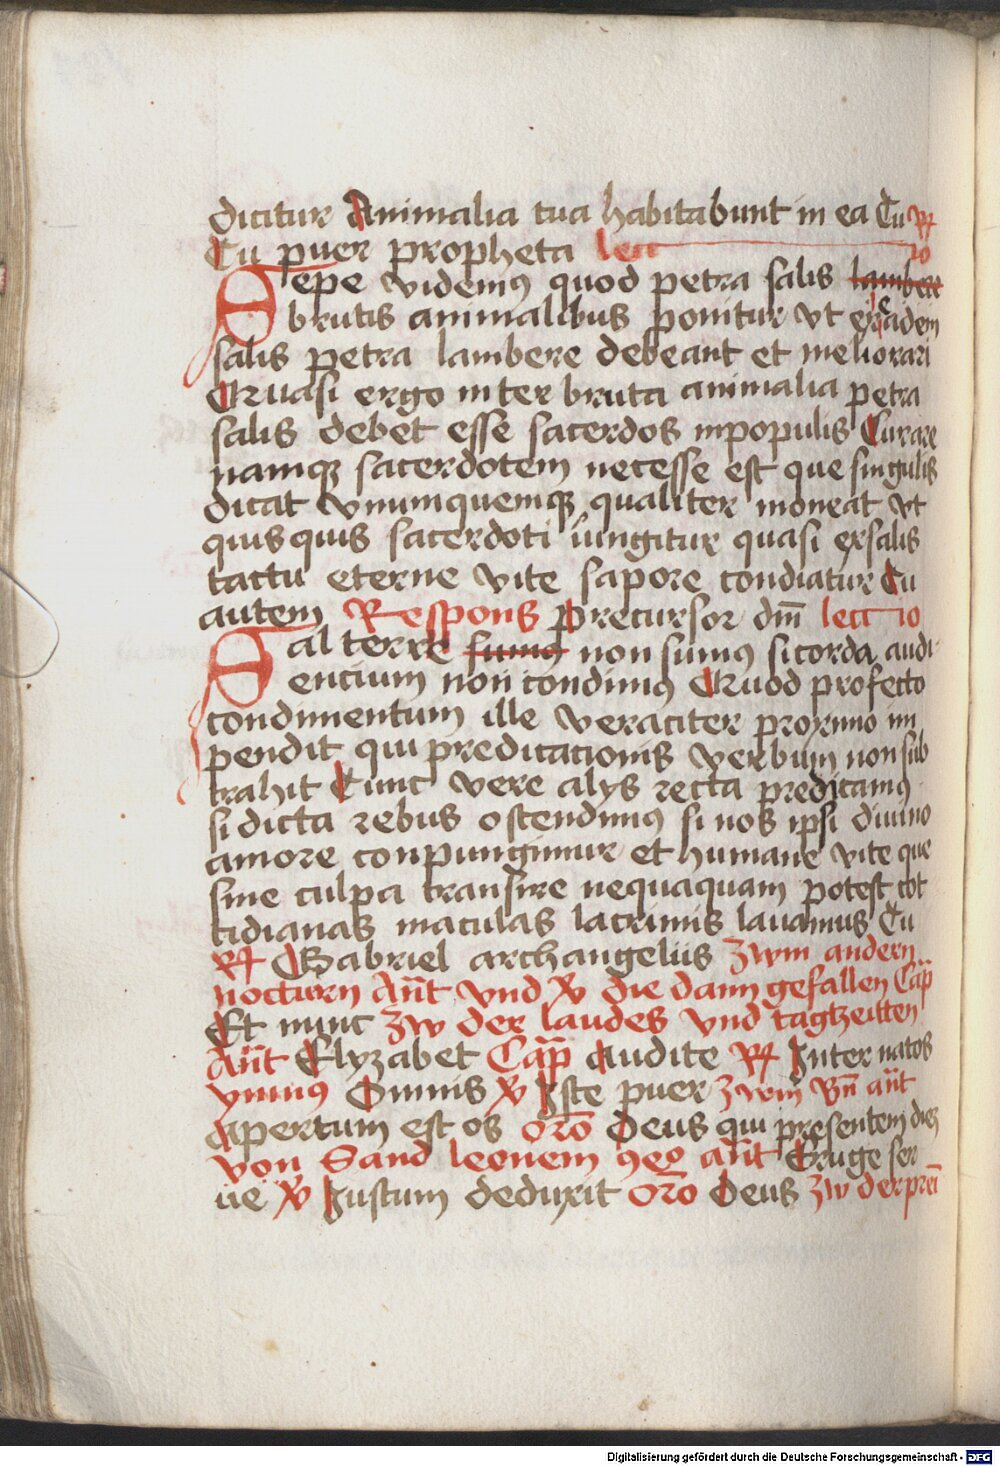 dicitur Animalia tua habitabunt in ea Tu R
Tu puer propheta lectio
Sepe videmus quod petra salis lambere
brutis animalibus ponitur vt ex eadem
salis petra lambere debeant et meliorari
Quasi ergo inter bruta animalia petra
salis debet esse sacerdos in populis Curare
namque sacerdotem necesse est que singulis
dicat vnumquemque qualiter moneat vt
quis quis sacerdoti iungitur quasi ex salis
tactu eterne vite sapore condiatur Tu
autem Respons Precursor dm̄ lectio
Sal terre sumus non sumus si corda audi
encium non condimus Quod profecto
condimentum ille veraciter proximo im
pendit qui predicationis verbum non sub
trahit Tunc vere alys recta predicamus
si dicta rebus ostendimus si nos ipsi diuino
amore conpungimur et humane vite que
sine culpa transire nequaquam potest cot
tidianas maculas lacrimis lauamus Tu
R Gabriel archangelus zwm andern
nocturn Ant vnd V die dann gefallen Cap
Et nunc zw der laudes vnd tagtzeitten
Ant Elyzabet Cap Audite R Inter natos
ymnus Omnis V Iste puer zwm Bn ant
Apertum est os oro Deus qui presentem diem
von Sand leonem ant Euge ser
ue V Iustum deduxit oro Deus zw der
Digitalisierung gefördert durch die Deutsche Forschungsgemeinschaft - DFG